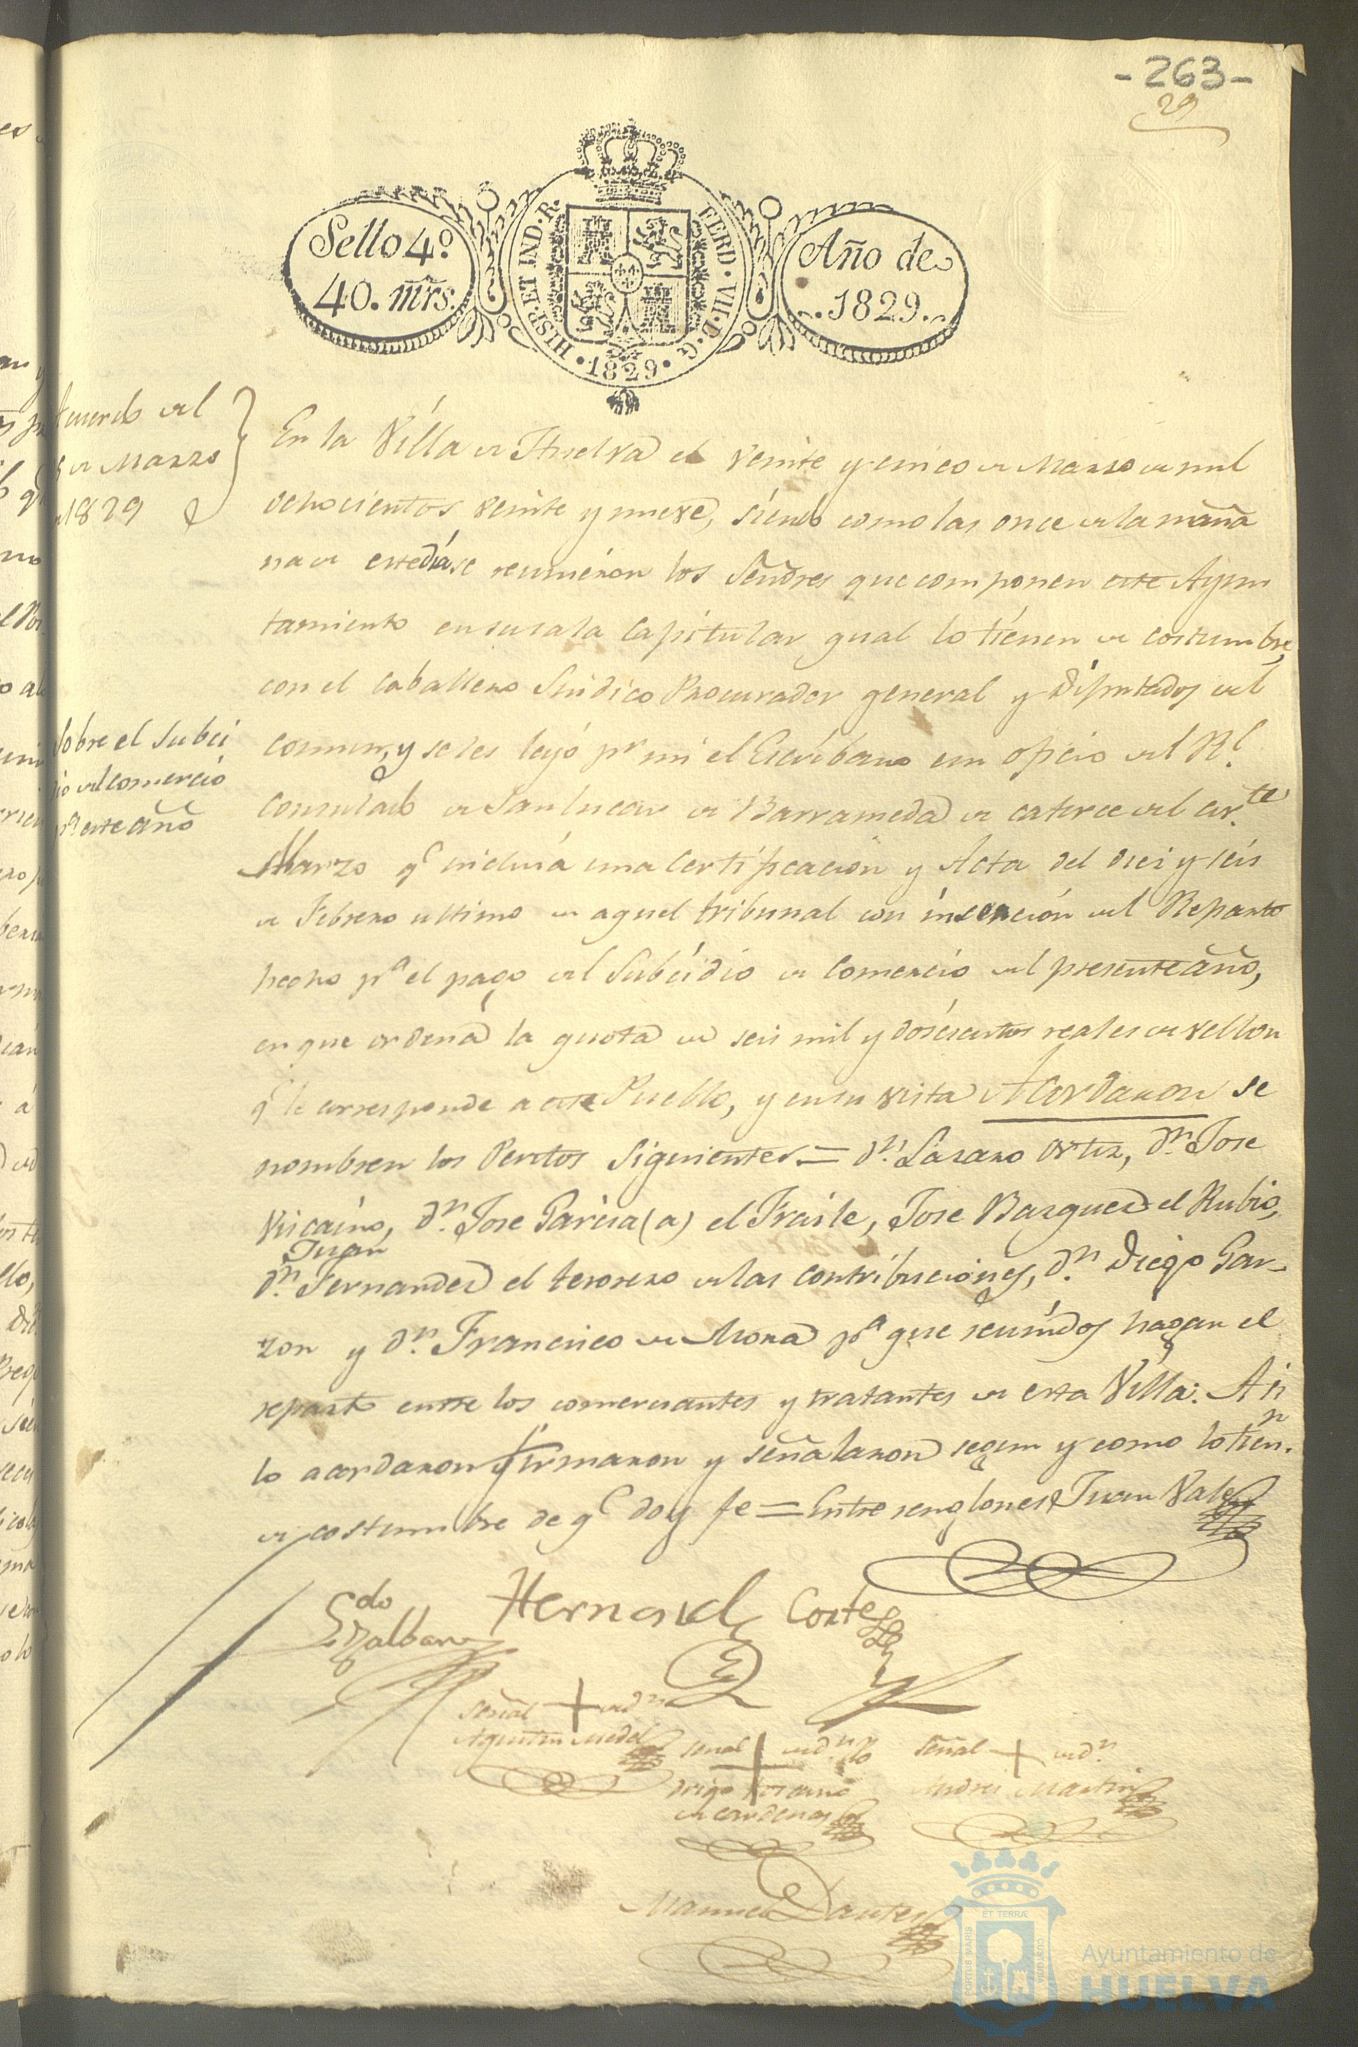 -263-
29
Sello 4º.
40. mrs.
HISP. ET IND. R.
FERD. VII. D. G.
1829
Año de
1829.
Acuerdo del
de Marzo
1829
En la Villa de Huelva el veinte y cinco de Marzo de mil
ochocientos veinte y nueve, siendo como las once de la maña
na de este dia se reunieron los Señores que componen este Ayun
tamiento en su sala Capitular qual lo tienen de costumbre,
con el Caballero Sindico Procurador general y Diputados del
comun, y se les leyó pr mi el Escribano un oficio del Rl.
Consulado de Sanlucar de Barrameda de catorce del corte.
Marzo qe incluia una Certificacion y Acta del diez y seis
de Febrero ultimo de aquel tribunal con insercion del Reparto
hecho pa el pago del Subsidio de Comercio del presente año,
en que ordena la quota de seis mil y doscientos reales de vellon
qe le corresponde a este Pueblo, y en su vista Acordaron se
nombren los Peritos Siguientes = Dn. Lázaro Ortiz, Dn. Jose
Vizcaino, Dn. Jose Garcia (a) el Fraile, Jose Bazquez el Rubio,
Juan
Dn. Fernandez el tesorero de las contribuciones, Dn. Diego Gar-
zon y Dn. Francisco de Mora pa que reunidos hagan el
reparto entre los comerciantes y tratantes de esta Villa. Asi
lo acordaron firmaron y señalaron segun y como lo tienn.
de costumbre de qe doy fe = Entre renglones Juan Vale
Sobre el Subci
dio del comercio
pa este año
Ldo
Hernand Cortes
señal + de Dn
Agustin Medel
señal + de Dn
Diego
de Cardenas
señal + de Dn
Andres Martin
Manuel Dante
PORTUS MARIS
ET TERRÆ
CUSTODIA
Ayuntamiento de
HUELVA